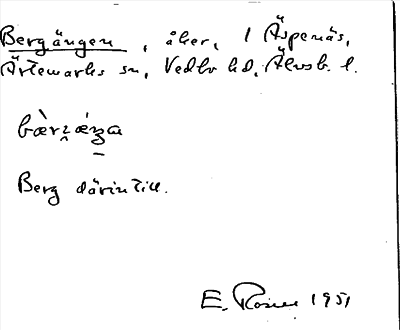 Bergängen, åker, i Äspenäs,
Ärtemarks sn, Vedbo hd, Älvsb. l.
bæ̀rzæŋa
Berg därintill.
E. Rosen 1951